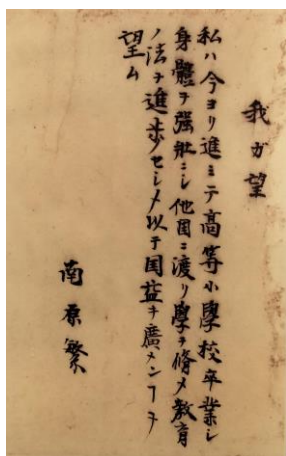 我ガ望
私ハ今ヨリ進ミテ高等小學校卒業シ
身體ヲ强壯ニシ他国ニ渡リ學ヲ脩メ教育
ノ法ヲ進歩セシメ以テ国益ヲ廣メンヿヲ
望ム
南原繁